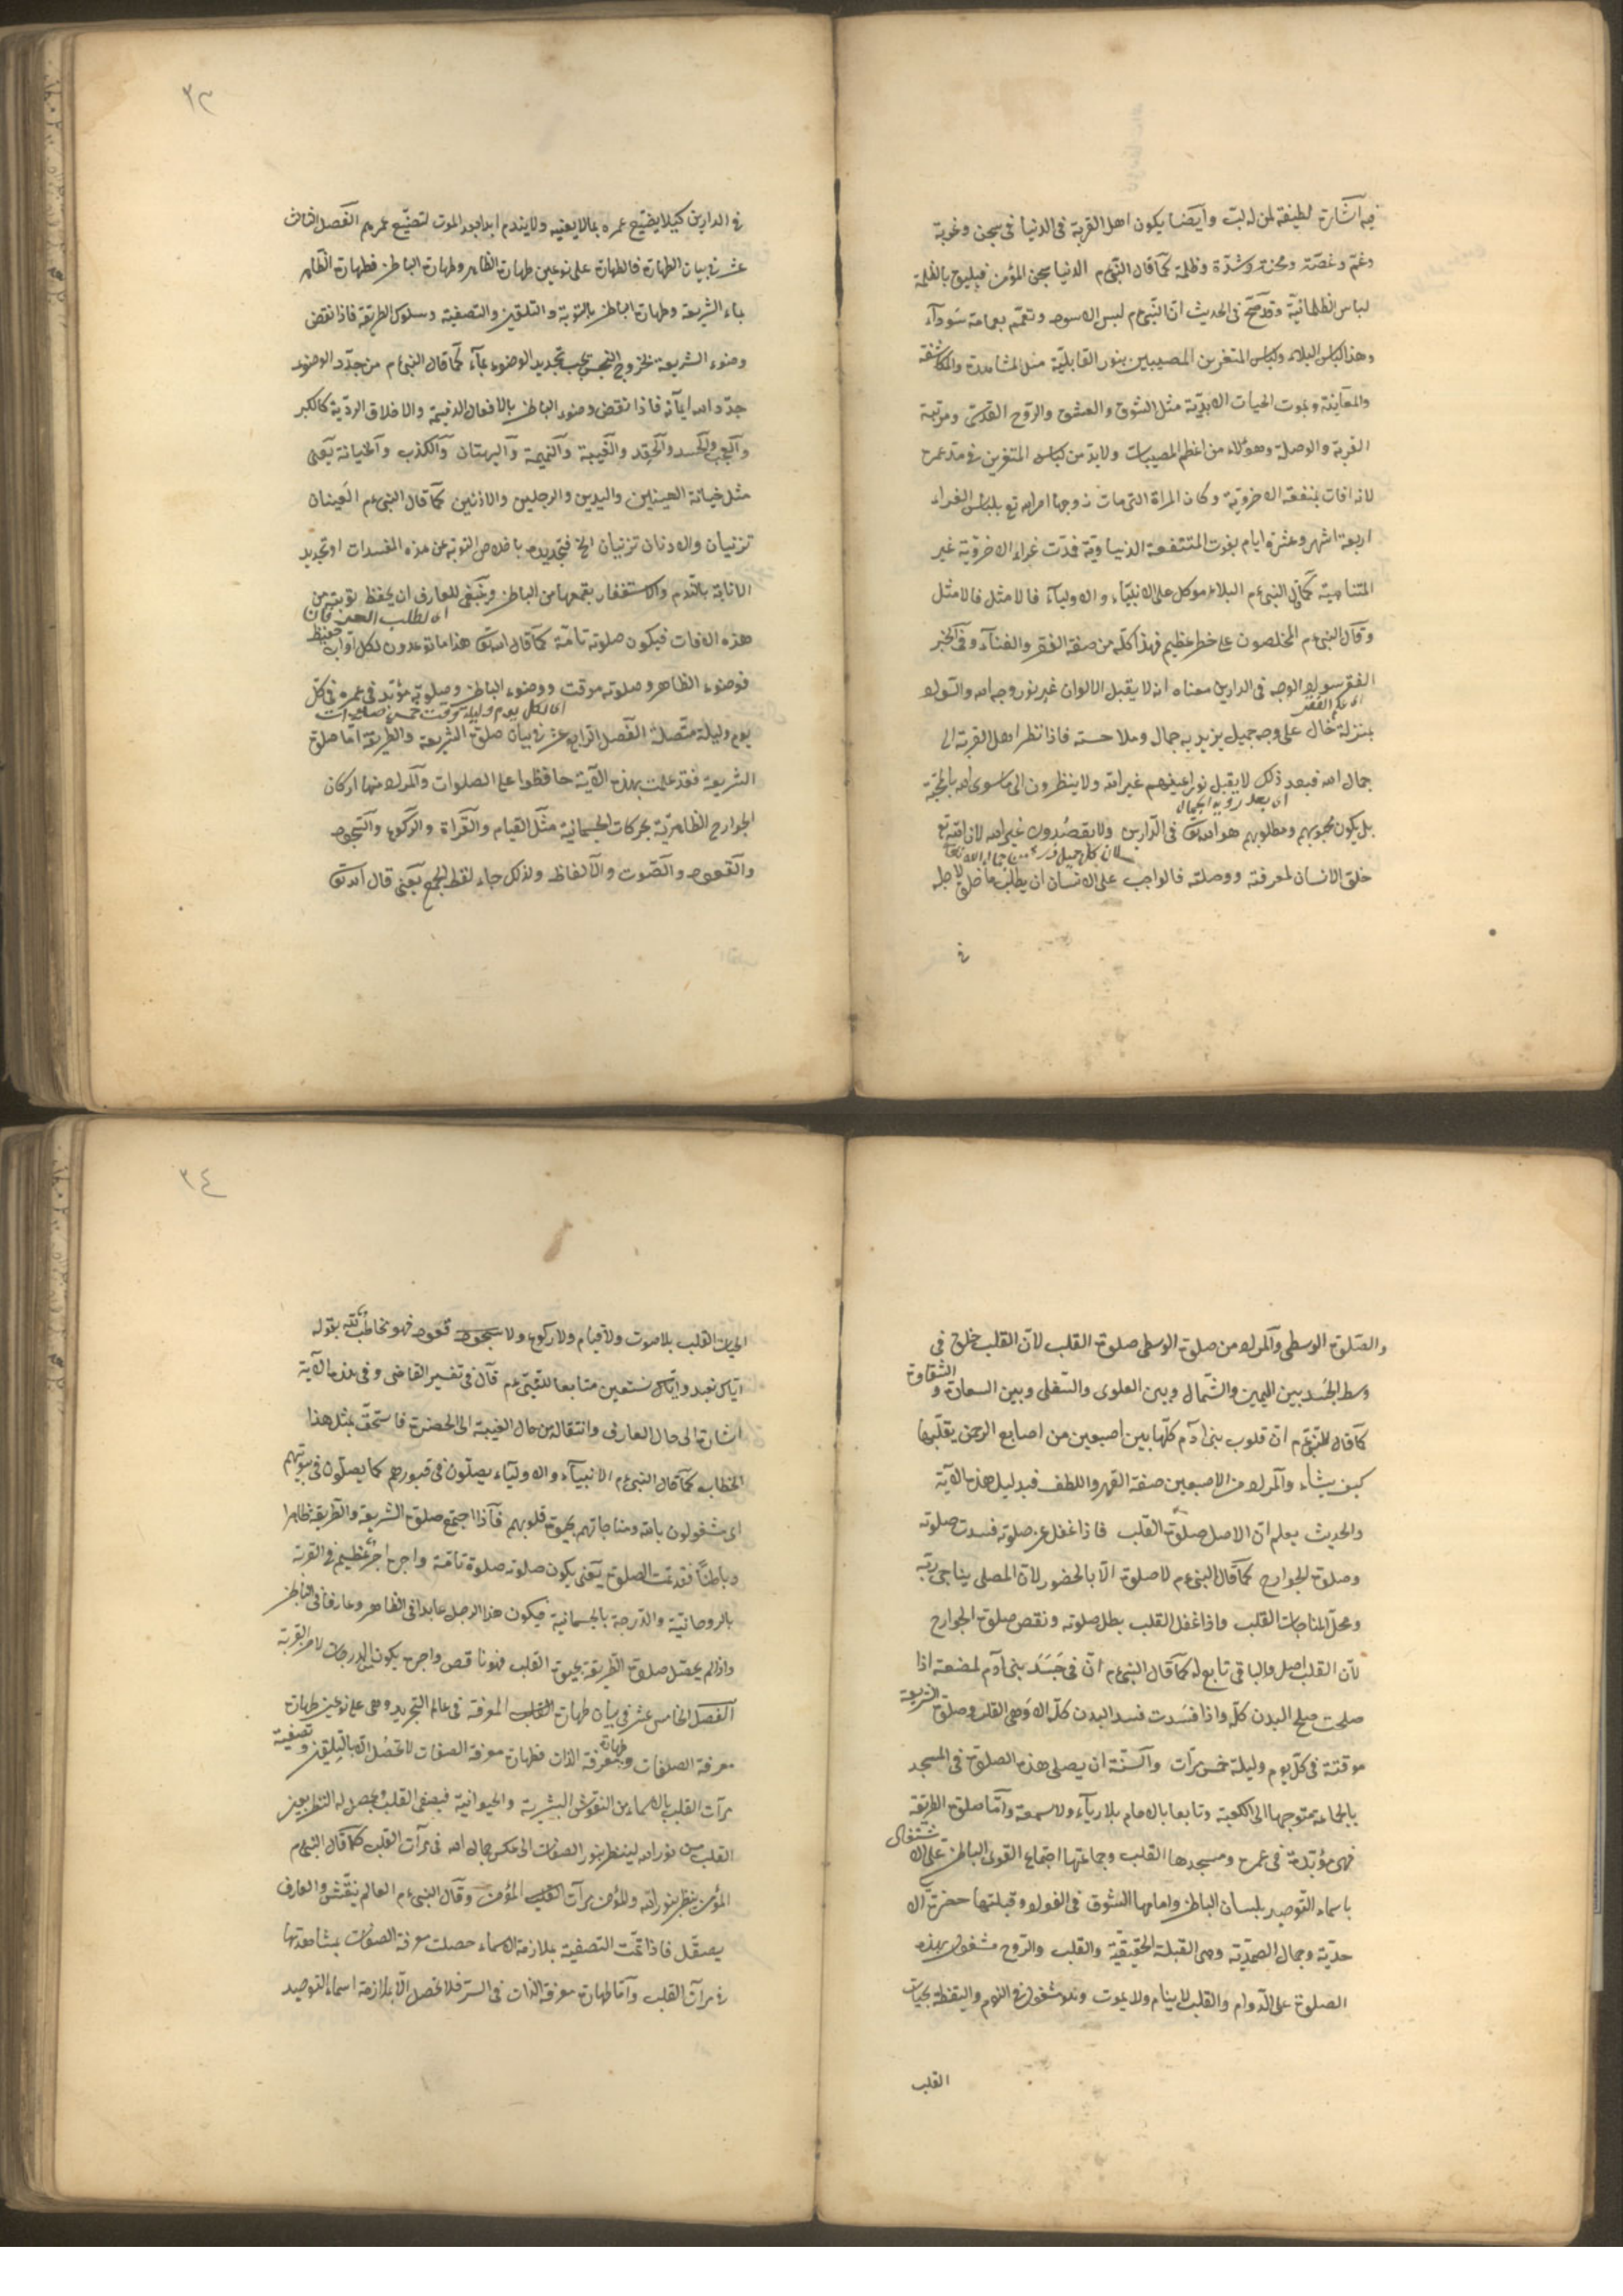 فيه اشارة لطيفة لمن له لبّ وايضا يكون اهل القربة فى الدنيا فى سجن وغربة
وغمّ وغصّة ومحنة وشدّة وظلمة كما قال النبىءم الدنيا سجن المؤمن فيليق بالظلمة
لباس الظلمانيّة وقد صحّ فى الحديث انّ النّبىءم لبس الاسود وتعمّم بعمامة سَودآء
وهذا لباس البلاء ولباس المتغرين المصيبين بنور القابليّة مثل المشاهدة والمكاشفة
والمعاينة وبموت الحيات الابديّة مثل الشوق والعشق والرّوح القدسىّ ومرتبة
القربة والوصلة وهؤلاء من اعظم المصيبات ولابدّ من لباس المتغرين فى مدة عمره
لانه افات بمنفعة الاخرويّة وكان المراة التى مات زوجها امر الله تع بلباس الغراء
اربعة اشهر وعشرة ايام بفوت المنتفعة الدنياوية فمدّت غراء الاخرويّة غير
المتناهية كما فى النبىءم البلاء موكل على الانبيّاء والاوليآء فالامثل فالامثل
وقال النبىءم المخلصون على خطر عظيم فهذا كلّه من صفة الفقر والفنآء وفى الخبر
الفقر سواد الوجه فى الدارين معناه انه لا يقبل الالوان غير نور وجه الله والسّواد
اى علم الفقر
بمنزلة خال على وجه جميل يزيد به جمال وملاحسته فاذا نظر اهل القربة الى
جمال الله فبعد ذلك لا يقبل نور اعينهم غير الله ولا ينظرون الى ما سوى الله بالمحبّة
اى بعد روية الجمال
بل يكون محبوبهم ومطلوبهم هو الله تعَ فى الدّارين ولا يقصُدون غير الله لان الله تع
لان كل جميل
خلق الانسان لمعرفته ووصلته فالواجب على الانسان ان يطلب ما خلق لاجله
فى
٣٣
فى الدارين كيلا يضيّع عمره بما لا يعنيه ولا يندم ابدا بعد الموت لتضيّع عمرهم الفصل الثالث
عشر فى بيان الطهارة فالطهارة على نوعين طهارة الظاهر وطهارة الباطن فطهارة الظّاهر
بماء الشريعة وطهارة الباطن بالتوبة والتلقين والتصفية وسلوك الطريقة فاذا نقض
وضوء الشريعة بخروج النجس يجب تجديد الوضوء بمآء كما قال النبىءم من جدّد الوضوء
جدّد الله ايمآنه فاذا نقض وضوء الباطن بالافعال الذميمة والاخلاق الردّية كالكبر
والعجب والحسد والحقد والغيبة والنميمة والبهتان والكذب والخيانة يعنى
مثل خيانة العينين واليدين والرجلين والاذنين كما قال النبىءم العينان
تزنيان والاذنان تزنيان الخ فتجديده باخلاص التوبة عن هذه المفسدات اوتجديد
الانابة بالنّدم والاستغفار بقمعها من الباطن وينبغى للعارف ان يحفظ توبته من
اى لطلب الحق فان
هذه الافات فيكون صلوته تامّة كما قال الله تعَ هذا ما توعدون لكل اوّاب حفيظ
فوضوء الظاهر وصلوته موقت ووضوء الباطن وصلوته مؤبّد فى عمره فى كلّ
اى لكل يوم وليلة توقت خمس صلوات
يوم وليلة متّصلة الفصل الرابع عشر فى بيان صلوة الشريعة والطريقة امّا صلوة
الشريعة فقد علمت بهذه الاية حافظوا على الصلوات والمراد منها اركان
الجوارح الظاهريّة بحركات الجسمانية مثل القيام والقرأة والركوع والسّجود
والقعود والصّوت والالفاظ ولذلك جاء لفظ الجمع يعنى قال الله تعَ
والصّلوة الوسطى والمراد من صلوة الوسطى صلوة القلب لانّ القلب خلق فى
وسط الجَسد بين اليمين والشّمال وبين العلوى والسّفلى وبين السعادة والشقاوة
كما قال النبىءم انّ قلوب بنى آدم كلّها بين اصبعين من اصابع الرحمن يقلّبها
كيف يشاء والمراد من الاصبعين صفة القهر واللطف فبدليل هذه الاية
والحديث يعلم انّ الاصل صلوة القلب فاذا غفل عن صلوته فسدت صلوته
وصلوة الجوارح كما قال النبىءم لا صلوة الّا بالحضور لانّ المصلى يناجى ربّه
ومحلّ المناجات القلب واذا غفل القلب بطل صلوته ونقص صلوة الجوارح
لانّ القلب اصل والباقى تابع له كما قال النبىءم انّ فى جَسَد بنى آدم لمضغة اذا
صلحت صلح البدن كلّه واذا فسَدت فسد البدن كلّه الا وَهى القلب وصلوة الشريعة
موقتة فى كلّ يوم وليلة خمس مرّات والسّنّة ان يصلى هذه الصلوة فى المسجد
بالجماعة متوجها الى الكعبة وتابعا بالامام بلا ريآء ولا سمعة وامّا صلوة الطريقة
فهى مؤبّدة فى عمره ومسجدها القلب وجماعتها اجتماع القوى الباطن على الاشتغال
باسماء التّوحيد بلسان الباطن وامامها الشّوق فى الفواد وقبلتها حضرة الا
حديّة وجمال الصمديّة وهى القبلة الحقيقيّة والقلب والرّوح مشغول بهذه
الصلوة على الدّوام والقلب لا ينام ولا يموت وهو مشغول فى النوم واليقظة بحيات
القلب
٣٤
الحيات القلب بلا صوت ولا قيام ولا ركوع ولا سجود قعود فهو مخاطب لله بقوله
ايّاك نعبد وايّاك نستعين متابعا للنّبىءم قال فى تفسير القاضى وفى هذه الاية
اشارة الى حال العارف وانتقاله من حال الغيبة الى الحضرة فاستحقّ بمثل هذا
الخطاب كما قال النبىءم الانبيآء والاوليآء يصلّون فى قبورهم كما يصلّون فى بيوتهم
اى مشغولون بالله ومناجاتهم بحيوة قلوبهم فاذا اجتمع صلوة الشريعة والطريقة ظاهرا
وباطنًا فقد تمّت الصلوة يعنى يكون صلوته صلوة تامّة واجره اجر عظيم فى القربة
بالروحانيّة والدّرجة بالجسمانية فيكون هذا الرجل عابدا فى الظاهر وعارفا فى الباطن
واذا لم يحصل صلوة الطّريقة بحيوة القلب فهو ناقص واجره يكون من الدرجات لا من القربة
الفصل الخامس عشر فى بيان طهارة القلب المعرفة فى عالم التجريد وهى على نوعين طهارة
معرفة الصفات وطهارة معرفة الذات فطهارة معرفة الصفات لا تحصُل الا بالتلقين وتصفية
مرآت القلب بالاسماء من النقوش البشرية والحيوانية فيصفى القلب ويحصل له النظر بعين
القلب من نور الله لينظر بنور الصفات الى عكس جمال الله فى مرآت القلب كما قال النبىءم
المؤمن ينظر بنور الله والمؤمن مرآت القلب المؤمن وقال النبىءم العالم ينقّش والعارف
يصقّل فاذا تمّت التصفية بملازمة الاسماء حصلت معرفة الصفات بمشاهدتها
فى مرآت القلب وامّا طهارة معرفة الذات فى السر فلا تحصل الّا بملازمة اسماء التوحيد